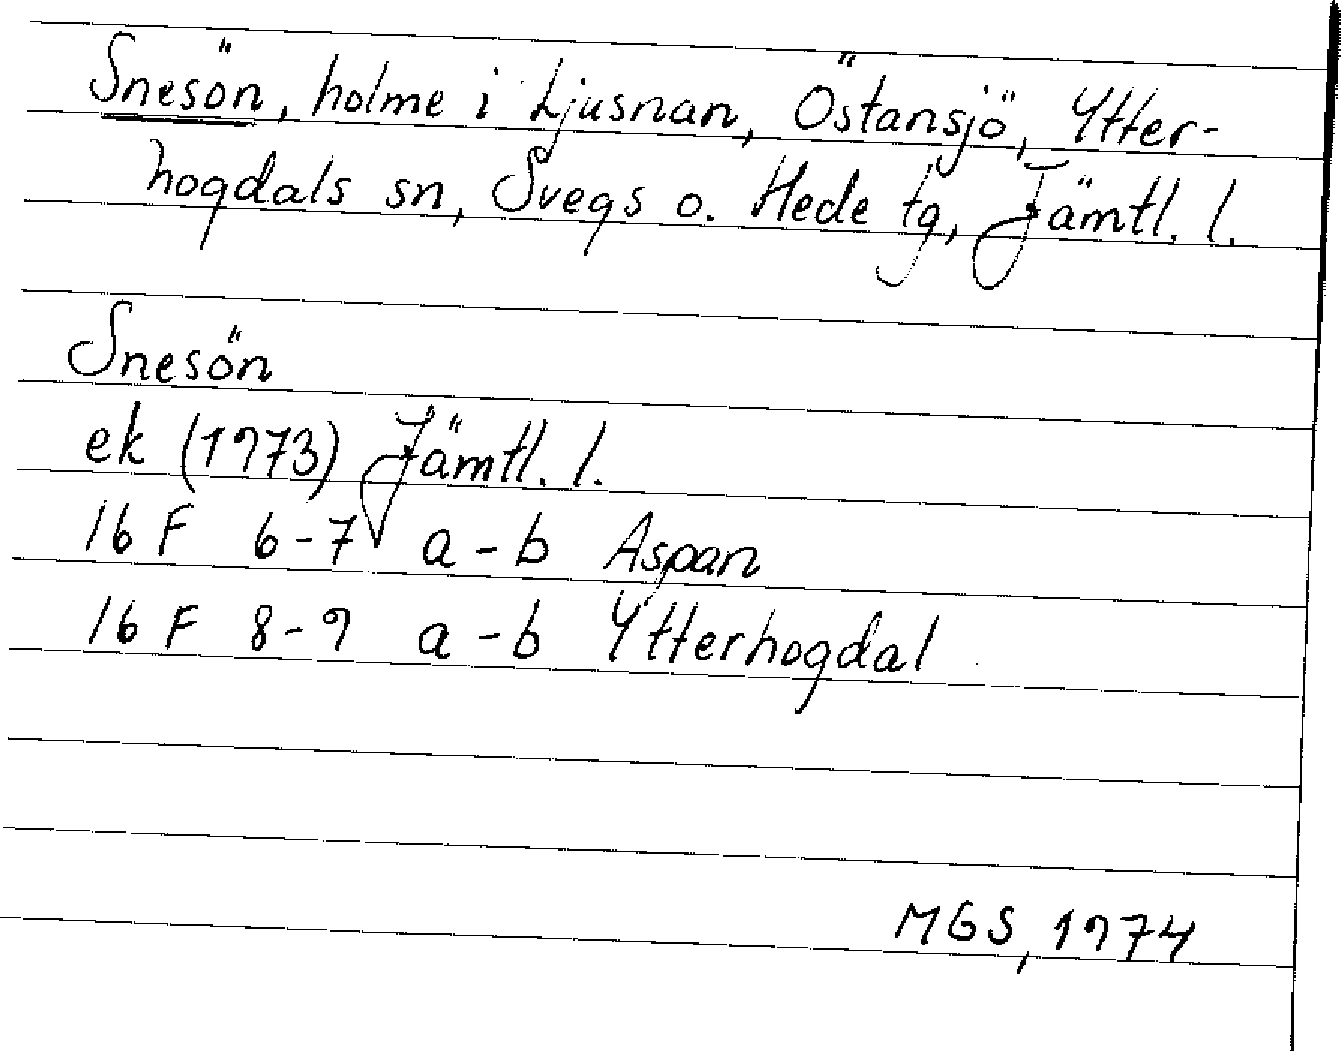 Snesön, holme i Ljusnan, Östansjö, Ytter-
hogdals sn, Svegs o. Hede tg, Jämtl. l.
Snesön
ek (1973) Jämtl. l.
16 F 6-7 a-b Aspan
16 F 8-9 a-b Ytterhogdal
MGS, 1974